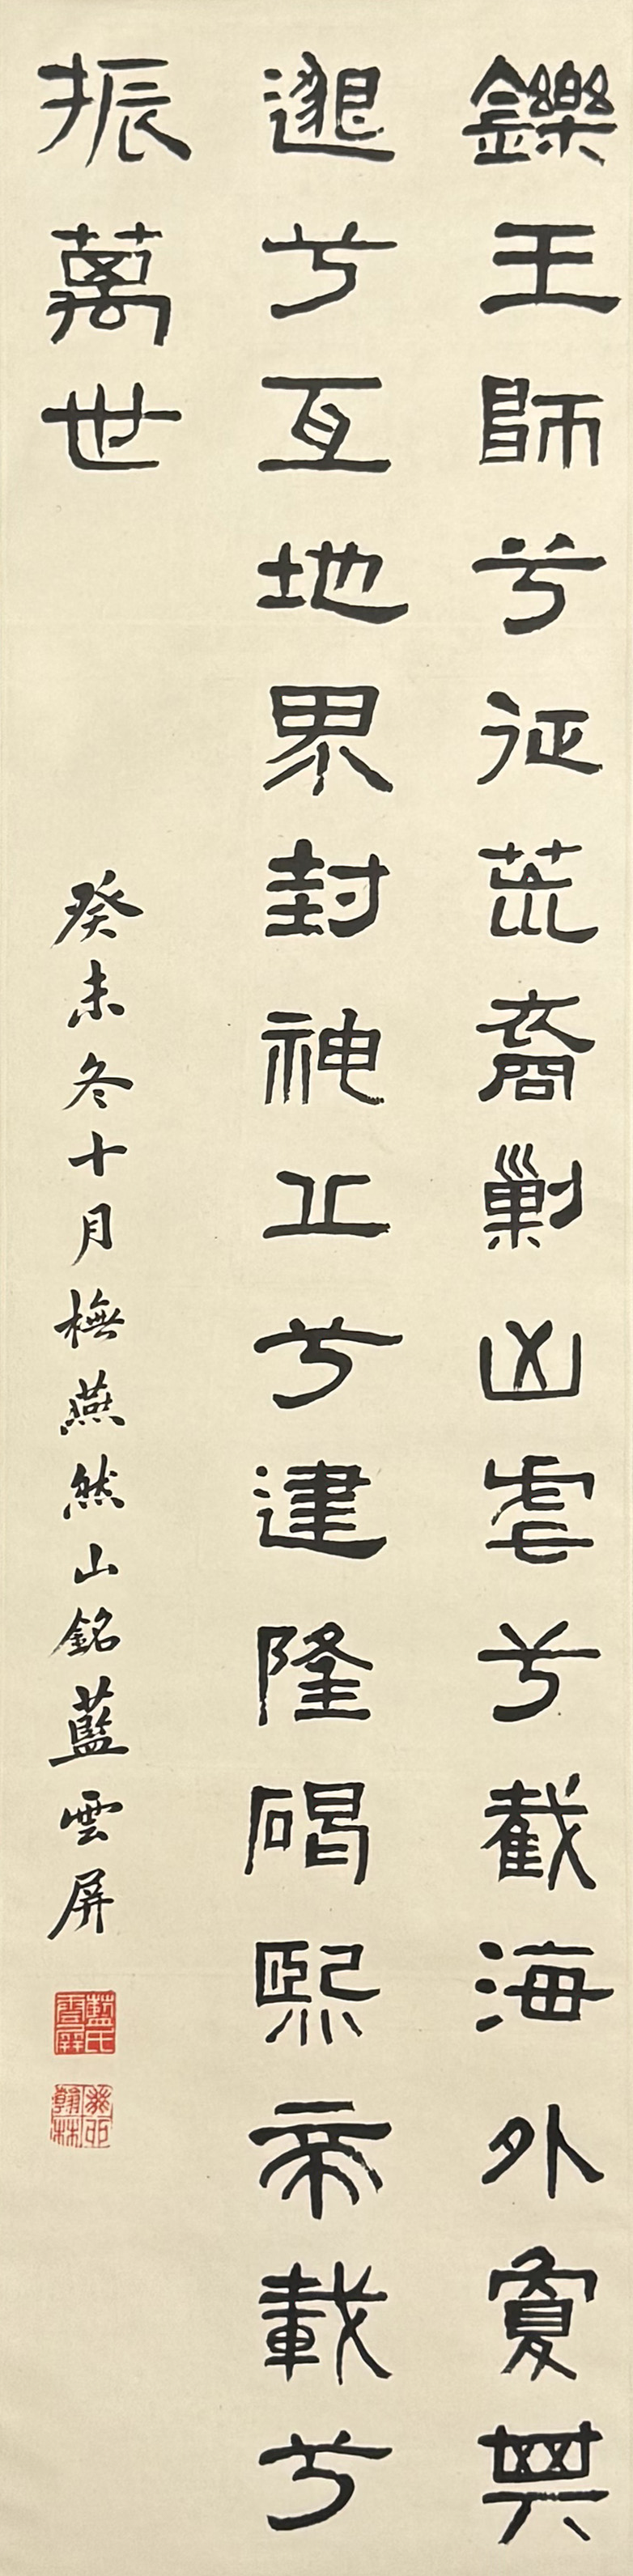 鑠王師兮征荒裔剿凶虐兮截海外夐其
邈兮亙地界封神丘兮建隆碣熙帝載兮
振萬世
癸未冬十月橅燕然山銘藍雲屏
藍氏雲屏